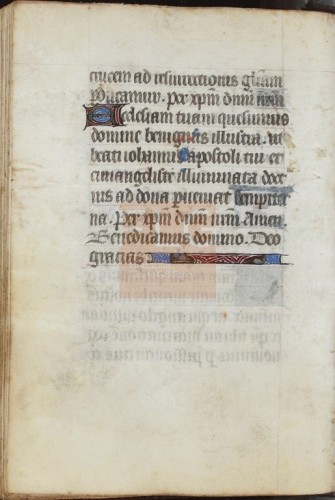 crucem ad resurrectionis gliam
p̄ducamur. Per xpm dnm nrm
Ecclesiam tuam quesumus
domine benignus illustra. ut
beati iohannis apostoli tui et
euangeliste illuminata doct
nis ad dona pueniat sempiter
na. Per xpm dnm nrm. Amen.
Benedicamus domino. Deo
gracias